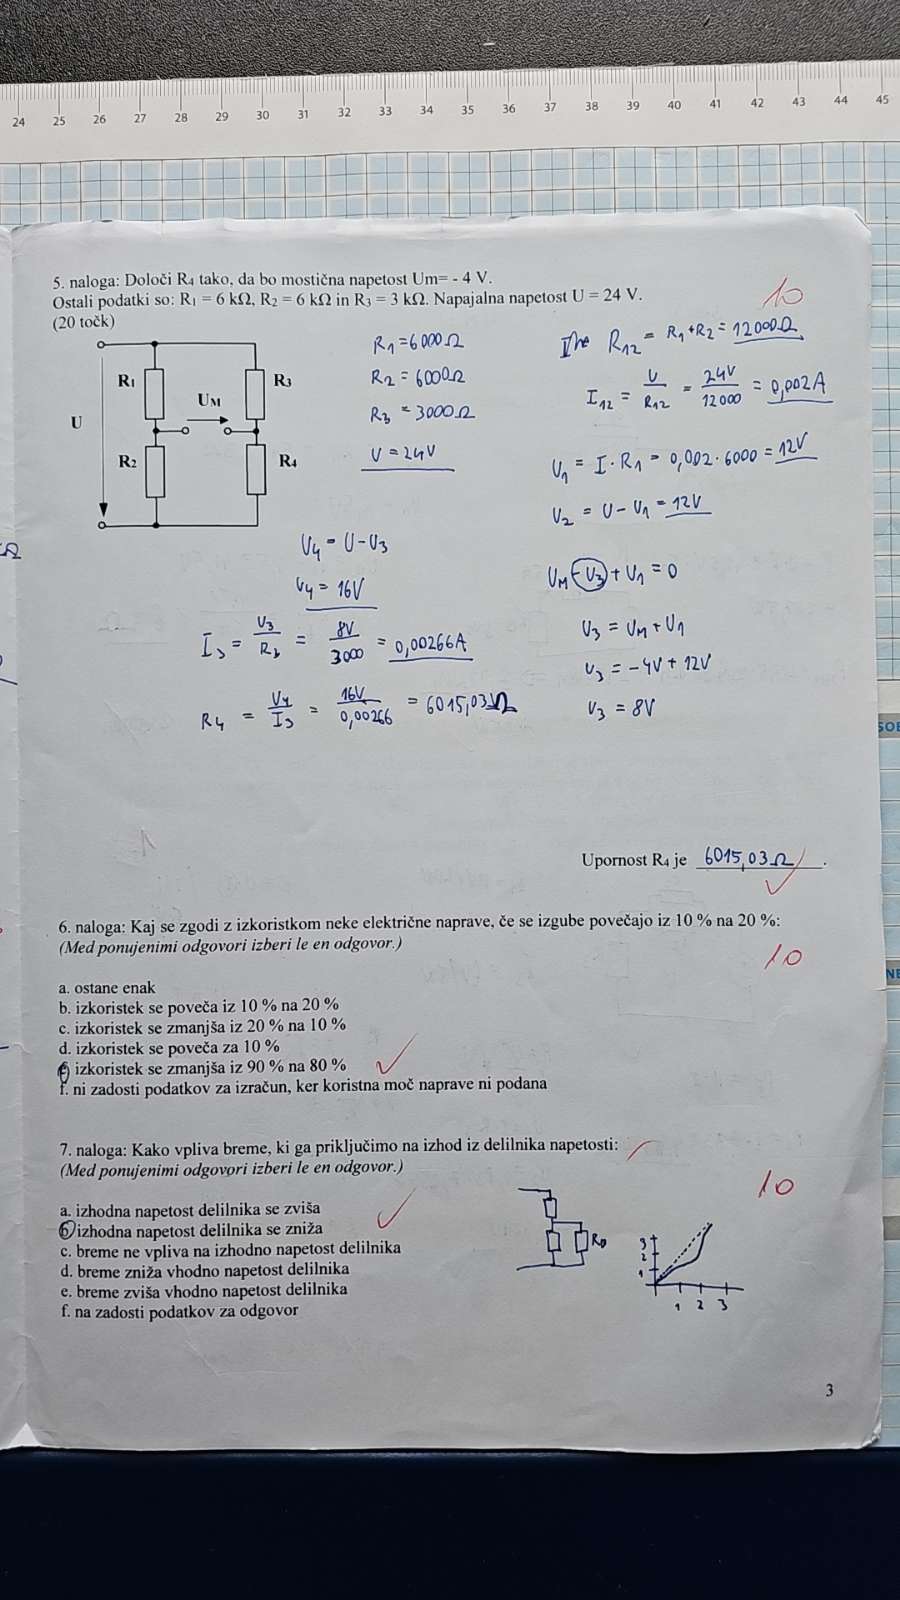 24 25 26 27 28 29 30 31 32 33 34 35 36 37 38 39 40 41 42 43 44 45
5. naloga: Določi R4 tako, da bo mostična napetost Um= - 4 V.
Ostali podatki so: R1 = 6 kΩ, R2 = 6 kΩ in R3 = 3 kΩ. Napajalna napetost U = 24 V.
(20 točk)
10
R1
R3
UM
U
R2
R4
R1=6000Ω
R2 = 6000Ω
R3 = 3000Ω
U = 24V
R12 = R1+R2 = 12000Ω
I12 = U/R12 = 24V/12000 = 0,002A
U1 = I·R1 = 0,002·6000 = 12V
U2 = U-U1 = 12V
UM-U3+U1=0
U3 = UM+U1
U3 = -4V+12V
U3 = 8V
U4 = U-U3
U4 = 16V
I3 = U3/R3 = 8V/3000 = 0,00266A
R4 = U4/I3 = 16V/0,00266 = 6015,03Ω
Upornost R4 je 6015,03Ω.
6. naloga: Kaj se zgodi z izkoristkom neke električne naprave, če se izgube povečajo iz 10 % na 20 %:
(Med ponujenimi odgovori izberi le en odgovor.)
10
a. ostane enak
b. izkoristek se poveča iz 10 % na 20 %
c. izkoristek se zmanjša iz 20 % na 10 %
d. izkoristek se poveča za 10 %
e. izkoristek se zmanjša iz 90 % na 80 %
f. ni zadosti podatkov za izračun, ker koristna moč naprave ni podana
7. naloga: Kako vpliva breme, ki ga priključimo na izhod iz delilnika napetosti:
(Med ponujenimi odgovori izberi le en odgovor.)
10
a. izhodna napetost delilnika se zviša
b. izhodna napetost delilnika se zniža
c. breme ne vpliva na izhodno napetost delilnika
d. breme zniža vhodno napetost delilnika
e. breme zviša vhodno napetost delilnika
f. na zadosti podatkov za odgovor
3
2
1
1 2 3
3